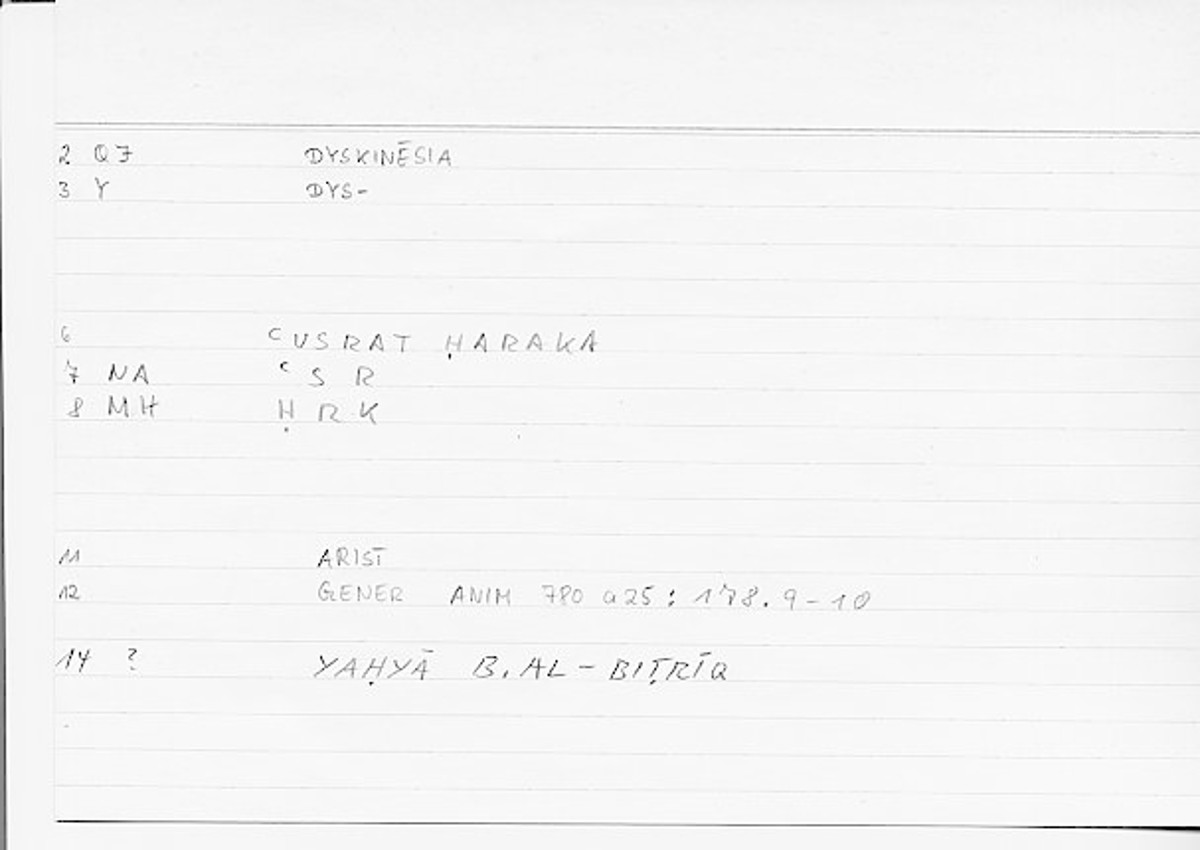 2 Q7 DYSKINĒSIA
3 Y DYS-
6 ʿUSRAT ḤARAKA
7 NA ʿSR
8 MH ḤRK
11 ARIST
12 GENER ANIM 780 a25: 178.9-10
14 ? YAḤYĀ B. AL-BIṬRĪQ